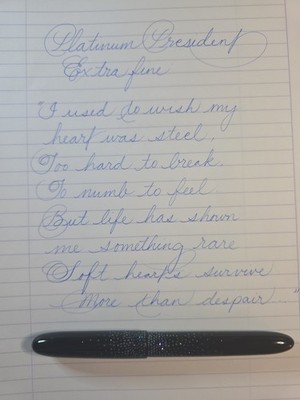 Platinum President
Extra fine
"I used to wish my
heart was steel.
Too hard to break.
To numb to feel
But life has shown
me something rare
Soft hearts survive
More than despair..."